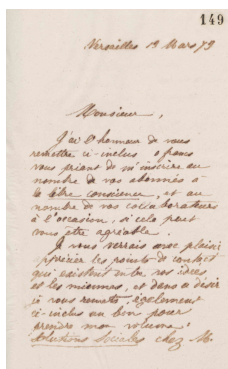 149
Versailles 19 Mars 79
Monsieur,
J'ai l'honneur de vous
remettre ci-inclus francs
vous priant de m'inscrire au
nombre de vos abonnés à
la conscience, et au
nombre de vos collaborateurs
à l'occasion, si cela peut
vous être agréable.
Je vous verrais avec plaisir
apprécier les points de contact
qui existent entre vos idées
et les miennes, et dans ce désir
je vous remets également
ci-inclus un bon pour
prendre mon volume:
Solutions Sociales chez M.